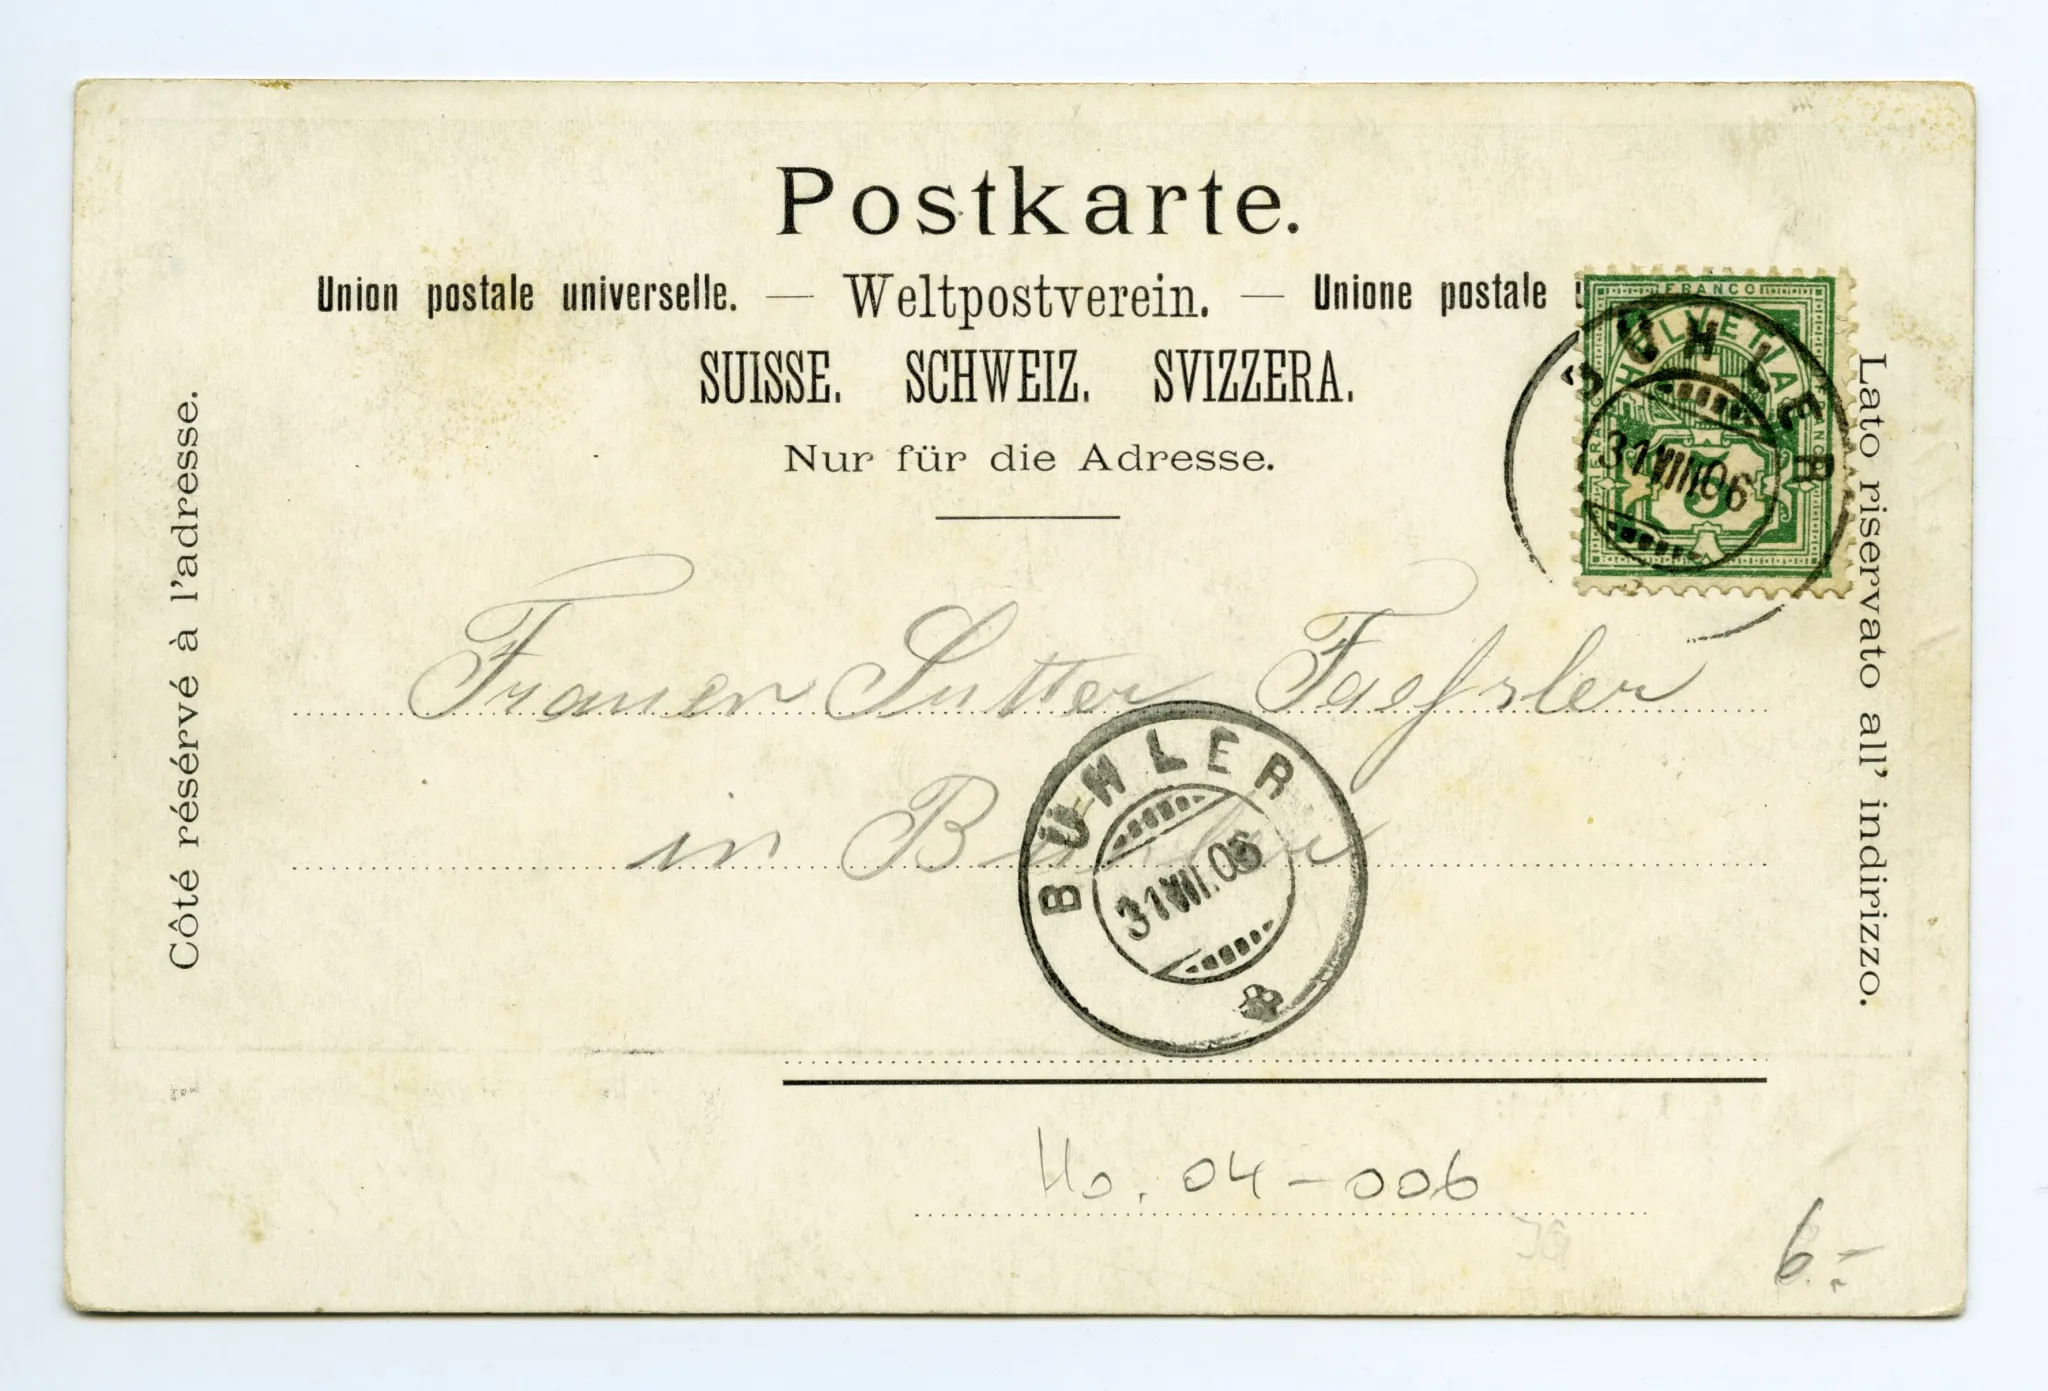 Postkarte.
Union postale universelle. — Weltpostverein. — Unione postale
SUISSE. SCHWEIZ. SVIZZERA.
Nur für die Adresse.
Côté résérvé à l'adresse.
Lato riservato all' indirizzo.
FRANCO
HELVETIA
FRANCO
5
BÜHLER
31 VIII 06
Frauen Sutter Faessler
in Bühler
BÜHLER
31 VIII. 06
Ho. 04-006
6.-